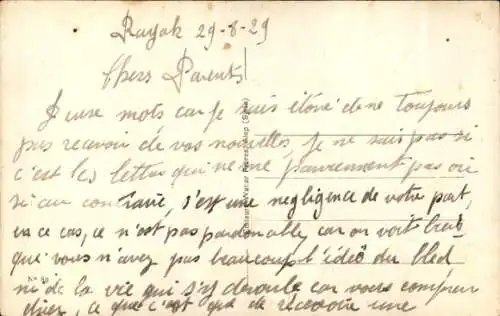 Rayak 29-8-29
Chers Parents
Deux mots car je suis étoné de ne toujours
pas recevoir de vos nouvelles, je ne sais pas si
c'est les lettres qui ne me parviennent pas ou
si au contraire, s'est une negligence de votre part,
en ce cas, ce n'est pas pardonable, car on voit bien
que vous n'avez pas beaucoup l'idée du bled
ni de la vie qui s'y déroule car vous
ce que c'est que de recevoir une